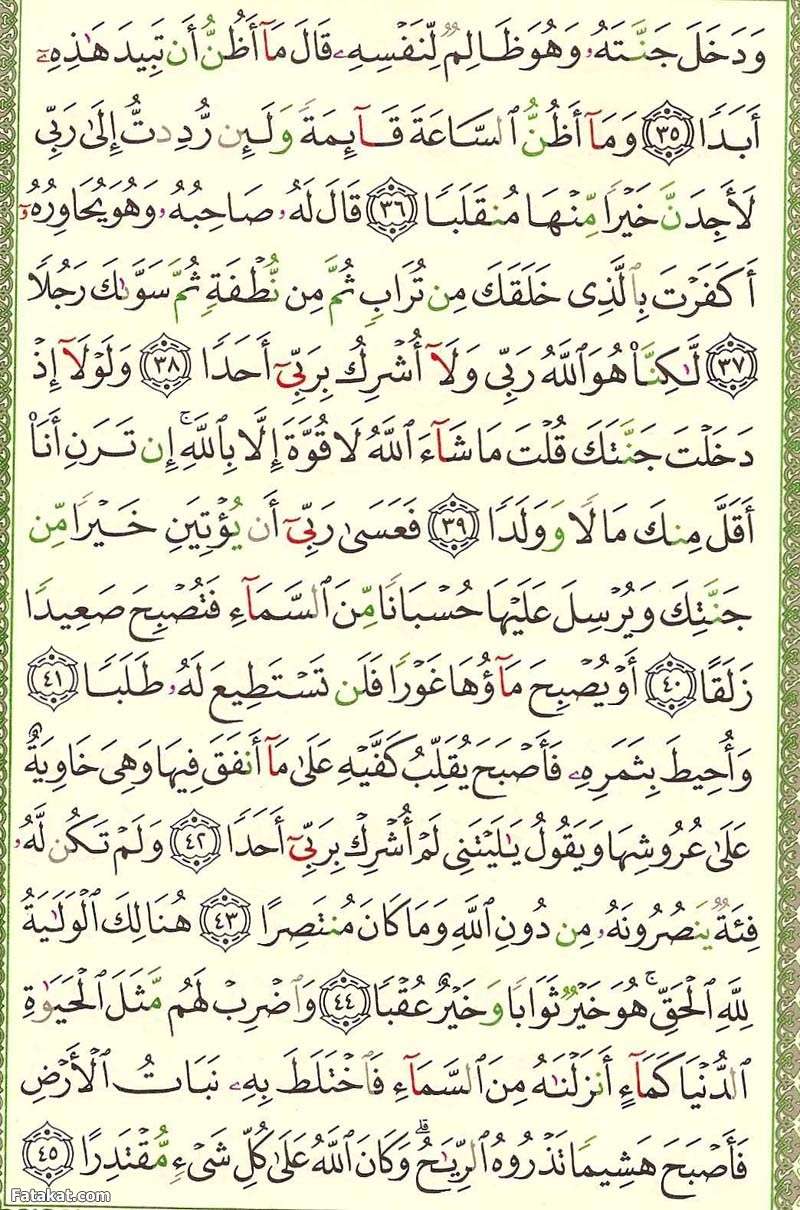 وَدَخَلَ جَنَّتَهُۥ وَهُوَ ظَالِمٌ لِّنَفْسِهِۦ قَالَ مَآ أَظُنُّ أَن تَبِيدَ هَٰذِهِۦٓ
أَبَدًا ٣٥ وَمَآ أَظُنُّ ٱلسَّاعَةَ قَآئِمَةً وَلَئِن رُّدِدتُّ إِلَىٰ رَبِّى
لَأَجِدَنَّ خَيْرًا مِّنْهَا مُنقَلَبًا ٣٦ قَالَ لَهُۥ صَاحِبُهُۥ وَهُوَ يُحَاوِرُهُۥٓ
أَكَفَرْتَ بِٱلَّذِى خَلَقَكَ مِن تُرَابٍ ثُمَّ مِن نُّطْفَةٍ ثُمَّ سَوَّىٰكَ رَجُلًا
٣٧ لَّٰكِنَّا۠ هُوَ ٱللَّهُ رَبِّى وَلَآ أُشْرِكُ بِرَبِّىٓ أَحَدًا ٣٨ وَلَوْلَآ إِذْ
دَخَلْتَ جَنَّتَكَ قُلْتَ مَا شَآءَ ٱللَّهُ لَا قُوَّةَ إِلَّا بِٱللَّهِ ۚ إِن تَرَنِ أَنَا۠
أَقَلَّ مِنكَ مَالًا وَوَلَدًا ٣٩ فَعَسَىٰ رَبِّىٓ أَن يُؤْتِيَنِ خَيْرًا مِّن
جَنَّتِكَ وَيُرْسِلَ عَلَيْهَا حُسْبَانًا مِّنَ ٱلسَّمَآءِ فَتُصْبِحَ صَعِيدًا
زَلَقًا ٤٠ أَوْ يُصْبِحَ مَآؤُهَا غَوْرًا فَلَن تَسْتَطِيعَ لَهُۥ طَلَبًا ٤١
وَأُحِيطَ بِثَمَرِهِۦ فَأَصْبَحَ يُقَلِّبُ كَفَّيْهِ عَلَىٰ مَآ أَنفَقَ فِيهَا وَهِىَ خَاوِيَةٌ
عَلَىٰ عُرُوشِهَا وَيَقُولُ يَٰلَيْتَنِى لَمْ أُشْرِكْ بِرَبِّىٓ أَحَدًا ٤٢ وَلَمْ تَكُن لَّهُۥ
فِئَةٌ يَنصُرُونَهُۥ مِن دُونِ ٱللَّهِ وَمَا كَانَ مُنتَصِرًا ٤٣ هُنَالِكَ ٱلْوَلَٰيَةُ
لِلَّهِ ٱلْحَقِّ ۚ هُوَ خَيْرٌ ثَوَابًا وَخَيْرٌ عُقْبًا ٤٤ وَٱضْرِبْ لَهُم مَّثَلَ ٱلْحَيَوٰةِ
ٱلدُّنْيَا كَمَآءٍ أَنزَلْنَٰهُ مِنَ ٱلسَّمَآءِ فَٱخْتَلَطَ بِهِۦ نَبَاتُ ٱلْأَرْضِ
فَأَصْبَحَ هَشِيمًا تَذْرُوهُ ٱلرِّيَٰحُ ۗ وَكَانَ ٱللَّهُ عَلَىٰ كُلِّ شَىْءٍ مُّقْتَدِرًا ٤٥
Fatakat.com